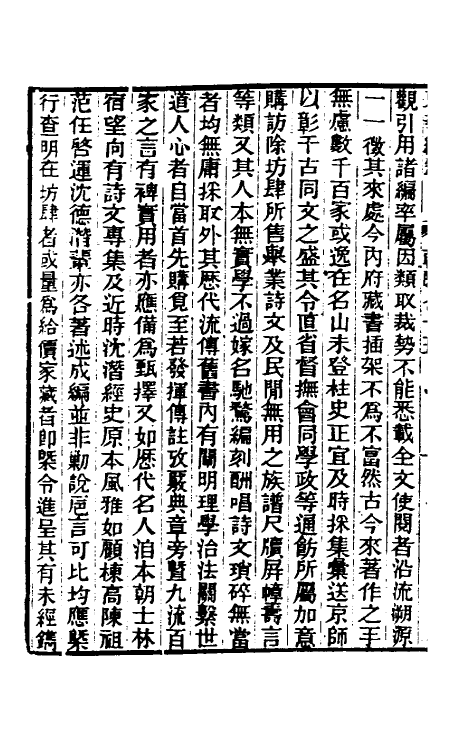 觀引用諸編率屬因類取裁勢不能悉載全文使閱者沿流溯源
一一徵其來處今內府藏書插架不爲不富然古今來著作之手
無慮數千百家或逸在名山未登柱史正宜及時採集彙送京師
以彰千古同文之盛其令直省督撫會同學政等通飭所屬加意
購訪除坊肆所售舉業詩文及民閒無用之族譜尺牘屏幛壽言
等類又其人本無實學不過嫁名馳騖編刻酬唱詩文瑣碎無當
者均無庸採取外其歷代流傳舊書內有闡明理學治法關繫世
道人心者自當首先購覓至若發揮傳註攷覈典章旁暨九流百
家之言有裨實用者亦應備爲甄擇又如歷代名人洎本朝士林
宿望向有詩文專集及近時沈潛經史原本風雅如顧棟高陳祖
范任啓運沈德潛輩亦各著述成編並非勦說巵言可比均應槩
行查明在坊肆者或量爲給價家藏者卽槩令進呈其有未經鐫